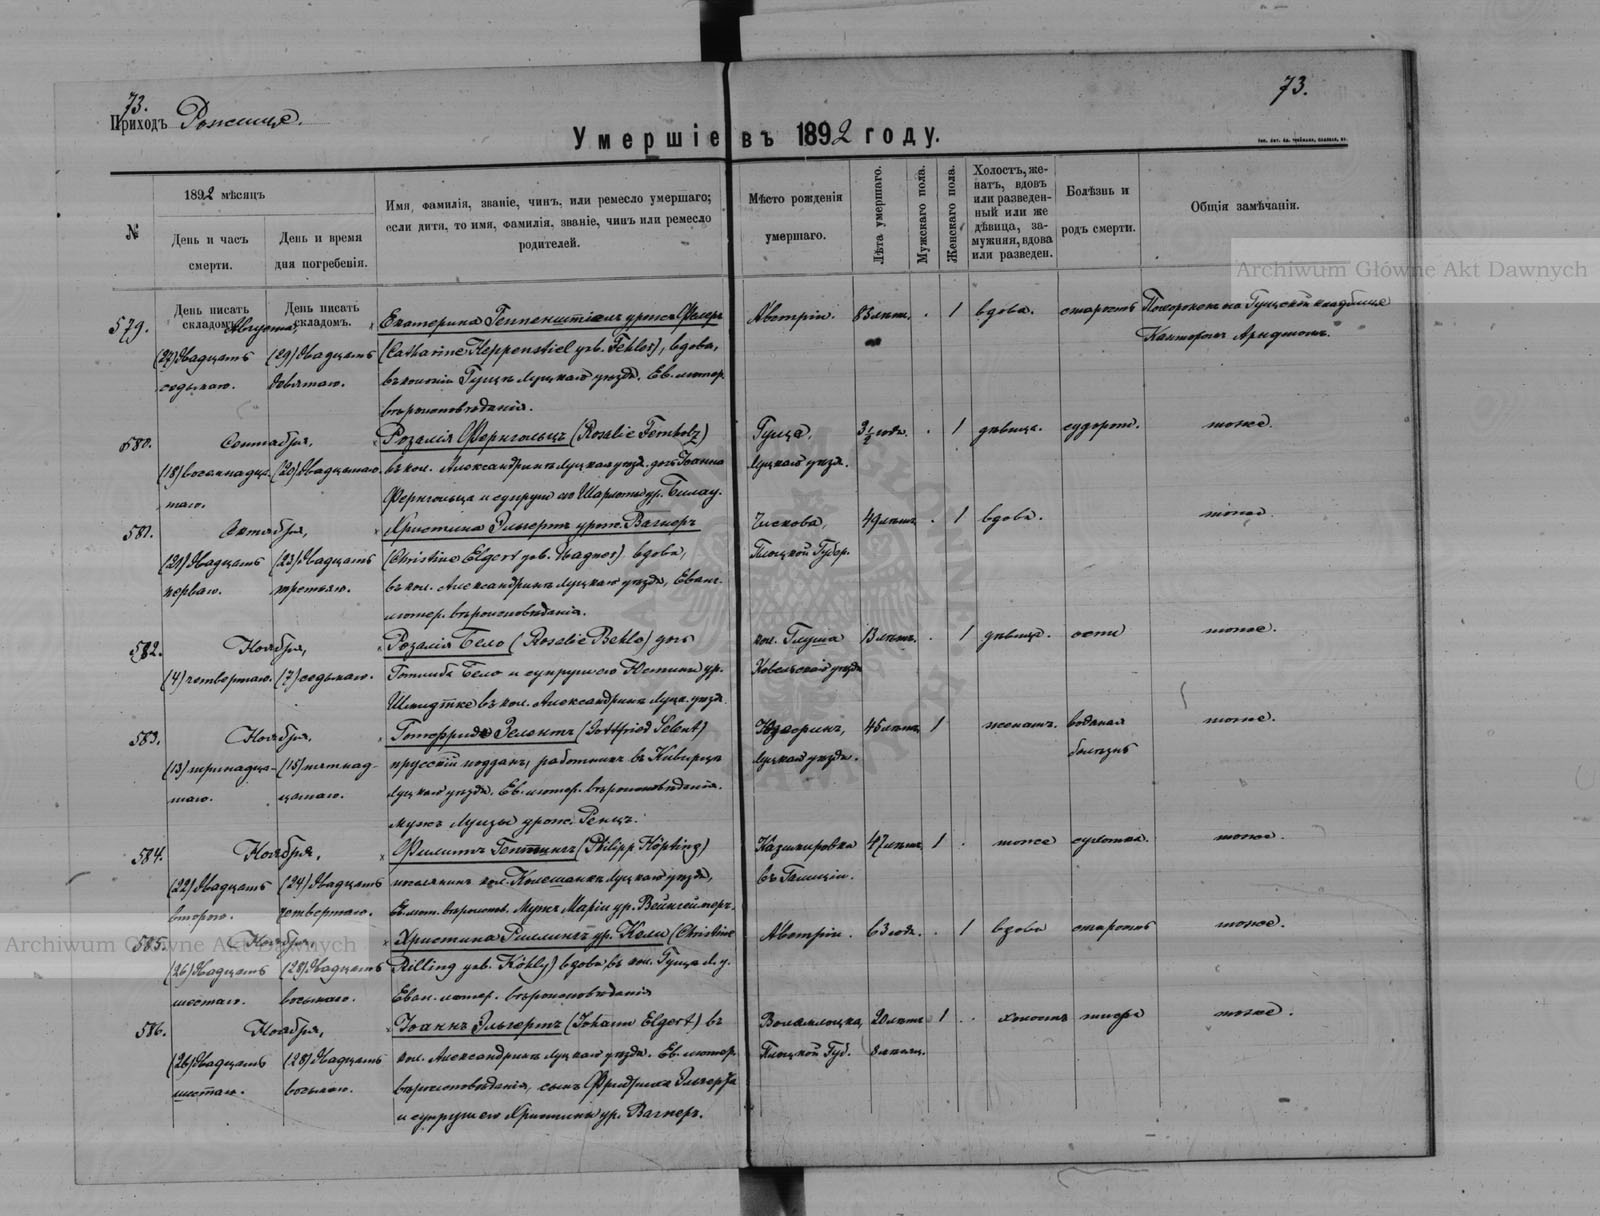 73.
73.
Приходъ Рожище.
Умершіе въ 1892 году.
№
1892 мѣсяцъ
День и часъ смерти.
День и время дня погребенія.
Имя, фамилія, званіе, чинъ, или ремесло умершаго;
если дитя, то имя, фамилія, званіе, чинъ или ремесло
родителей.
Мѣсто рожденія
умершаго.
Лѣта умершаго.
Мужскаго пола.
Женскаго пола.
Холостъ, же-
натъ, вдовъ
или разведен-
ный или же
дѣвица, за-
мужняя, вдова
или разведен.
Болѣзнь и
родъ смерти.
Общія замѣчанія.
День писать складомъ.
День писать складомъ.
579.
Августа,
(27) двадцать
седьмаго.
(29) двадцать
девятаго.
Екатерина Геппенштіель урож. Фелеръ
(Catharine Heppenstiel geb. Fehler), вдова,
въ колоніи Гуща Луцкаго уѣзда. Ев. лютер.
вѣроисповѣданія.
Австрія.
83 лѣтъ.
1
вдова.
старость
Похороненъ на Гущской кладбище
Канторомъ Арндтомъ.
580.
Сентября,
(18) восемнадца-
таго.
(20) двадцатаго.
Розалія Фернгольцъ (Rosalie Fernholz)
въ кол. Александринѣ Луцкаго уѣзда. дочь Іоанна
Фернгольца и супруги его Шарлоты ур. Билау.
Гуща,
Луцкаго уѣзда.
3½ года.
1
дѣвица.
судорог.
тоже.
581.
Октября,
(21) двадцать
перваго.
(23) двадцать
третьяго.
Христина Эльгертъ урож. Вагнеръ
(Christine Elgert geb. Wagner) вдова,
въ кол. Александринѣ Луцкаго уѣзда, Еванг.
лютер. вѣроисповѣданія.
Плоцкой Губер.
49 лѣтъ.
1
вдова.
тоже.
582.
Ноября,
(4) четвертаго.
(7) седьмаго.
Розалія Бело (Rosalie Behlo) дочь
Готлиба Бело и супруги его Юстины ур.
Шмидтке въ кол. Александринѣ Луцк. уѣзда
кол. Глуша
Ковельскаго уѣзда
13 лѣтъ.
1
дѣвица.
оспа
тоже.
583.
Ноября,
(13) тринадца-
таго.
(15) пятнад-
цатаго.
Готфридъ Зелентъ (Gottfried Selent)
прусскій подданъ, работникъ въ Киверцы
Луцкаго уѣзда. Ев. лютер. вѣроисповѣданія.
мужъ Луизы урож. Ренцъ.
Луцкаго уѣзда.
45 лѣтъ
1
женатъ.
водяная
болѣзнь
тоже.
584.
Ноября,
(22) двадцать
втораго.
(24) двадцать
четвертаго.
Филиппъ Гептингъ (Philipp Höpting)
поселянинъ кол. Колешанка Луцкаго уѣзда,
Ев. лют. вѣроисп. Мужъ Маріи ур. Вейнгеймеръ.
Казимировка
въ Галиціи.
47 лѣтъ
1
тоже
сухотка.
тоже.
585.
Ноября,
(26) двадцать
шестаго.
(28) двадцать
восьмаго.
Христина Риллингъ ур. Кели (Christine
Rilling geb. Köhly) вдова въ кол. Гуща Л. у.
Еван. лютер. вѣроисповѣданія
Австрія.
63 года.
1
вдова
старость
тоже.
586.
Ноября,
(26) двадцать
шестаго.
(28) двадцать
восьмаго.
Іоаннъ Эльгертъ (Johann Elgert) въ
кол. Александринѣ Луцкаго уѣзда. Ев. лютер.
вѣроисповѣданія, сынъ Фридриха Эльгерта
и супруги его Христины ур. Вагнеръ.
Плоцкой Губ.
20 лѣтъ
8 мѣсяц.
1
холостъ
тифъ
тоже.
Archiwum Główne Akt Dawnych
Archiwum Główne Akt Dawnych